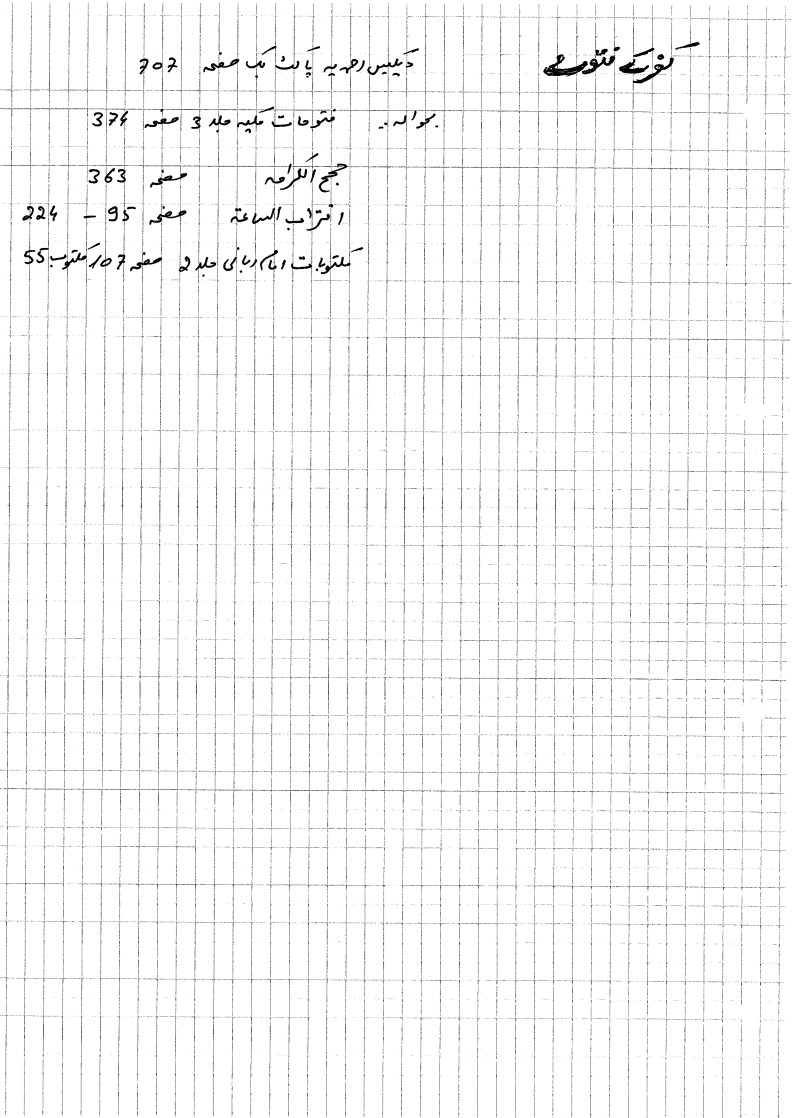 کفر کے فتوے
دیکھیں احمدیہ پاکٹ بک صفحہ 707
بحوالہ :۔ فتوحات مکیہ جلد 3 صفحہ 374
حجج الکرامہ صفحہ 363
اقتراب الساعة صفحہ 95 – 224
مکتوبات امام ربانی جلد 2 صفحہ 107 مکتوب 55